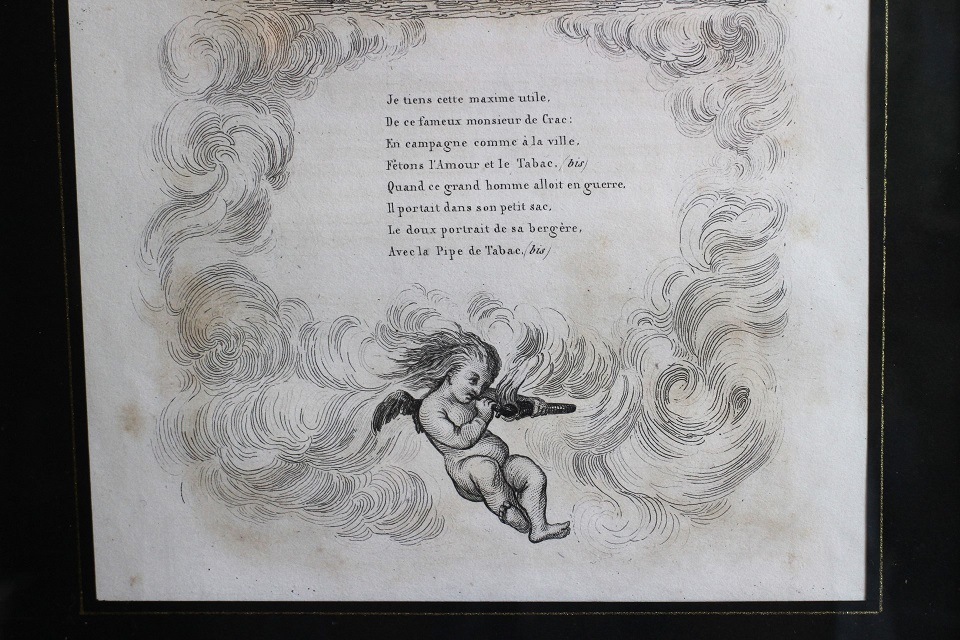 Je tiens cette maxime utile,
De ce fameux monsieur de Crac:
En campagne comme à la ville,
Fêtons l'Amour et le Tabac. (bis)
Quand ce grand homme alloit en guerre,
Il portait dans son petit sac,
Le doux portrait de sa bergère,
Avec la Pipe de Tabac. (bis)